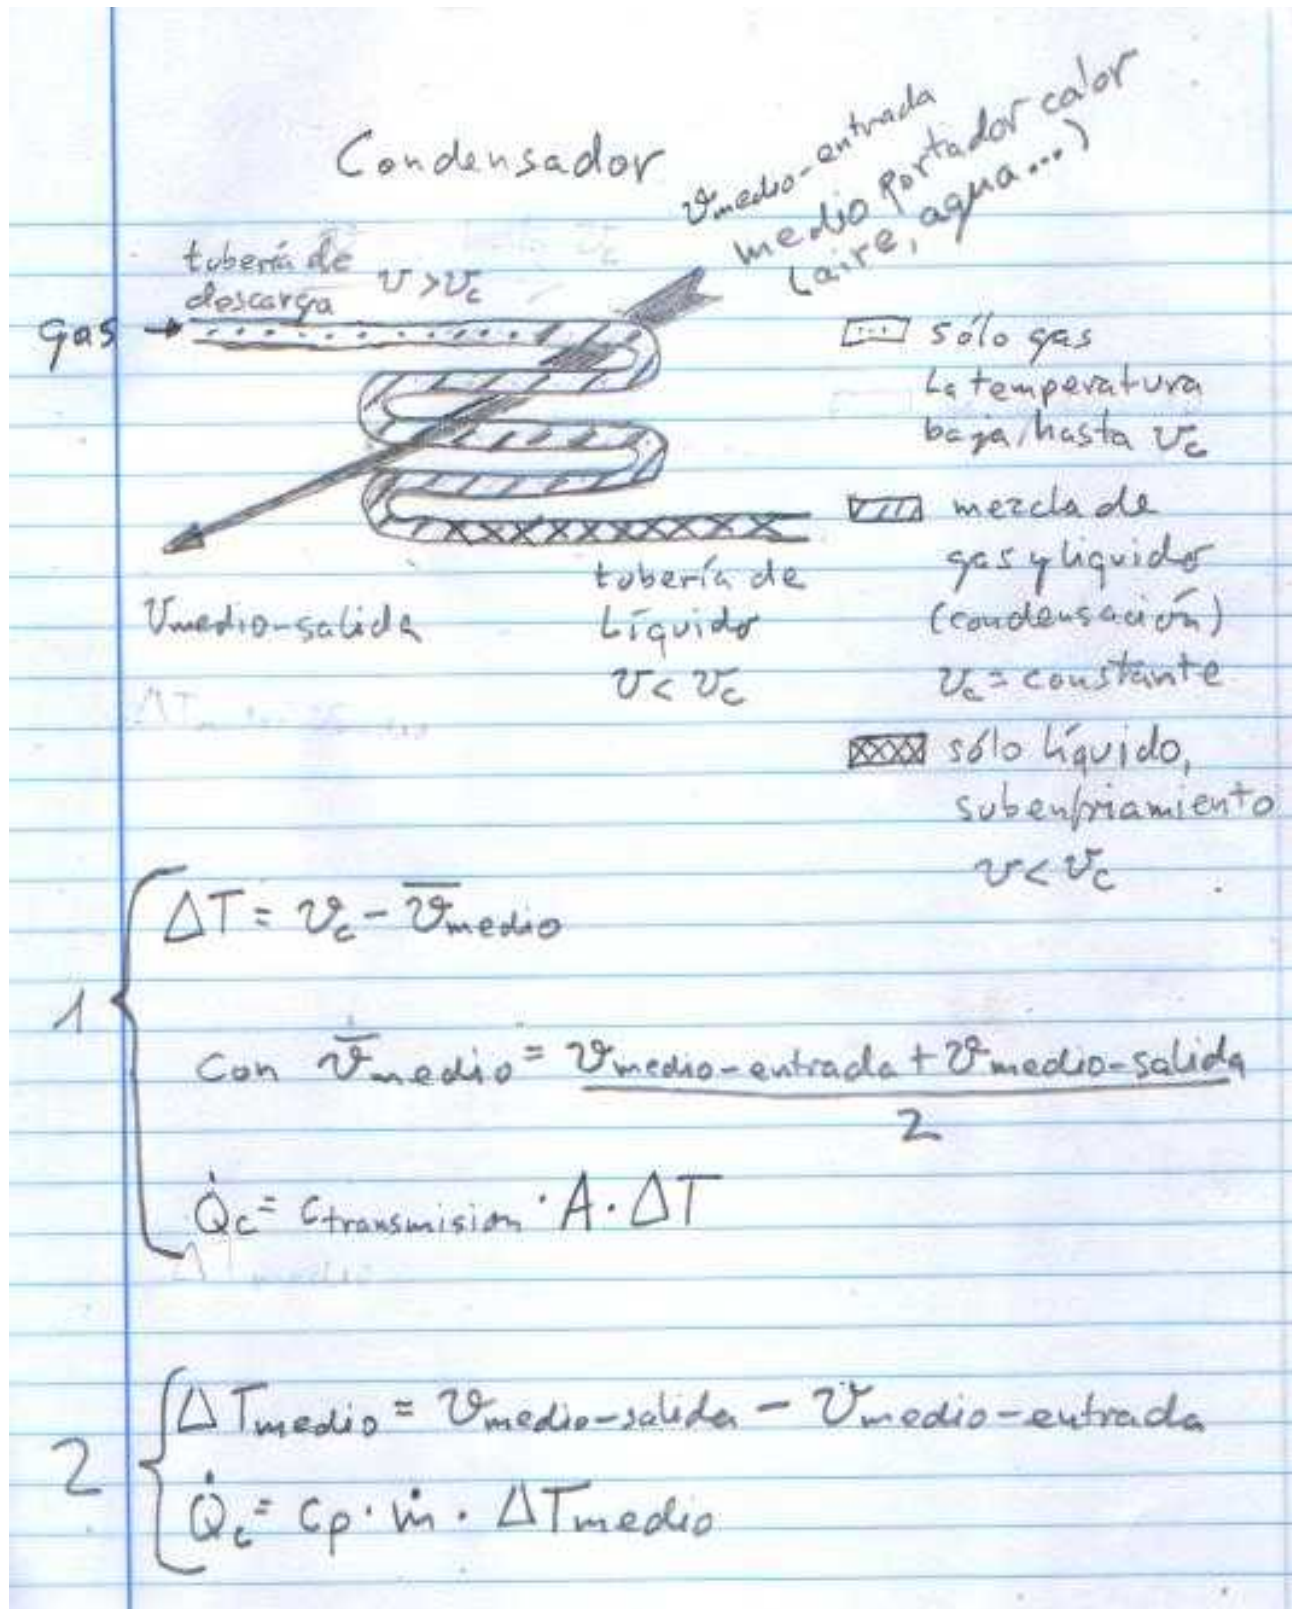 Condensador
ϑmedio-entrada
medio portador calor
(aire, agua...)
tubería de
descarga ϑ>ϑc
gas →
sólo gas
La temperatura
baja hasta ϑc
mezcla de
gas y líquido
(condensación)
ϑc = constante
sólo líquido,
subenfriamiento
ϑ < ϑc
ϑmedio-salida
tubería de
Líquido
ϑ < ϑc
1
ΔT = ϑc - ϑ̅medio
con ϑ̅medio = ϑmedio-entrada + ϑmedio-salida
2
Q̇c = Ctransmision · A · ΔT
2
ΔTmedio = ϑmedio-salida - ϑmedio-entrada
Q̇c = cp · ṁ · ΔTmedio